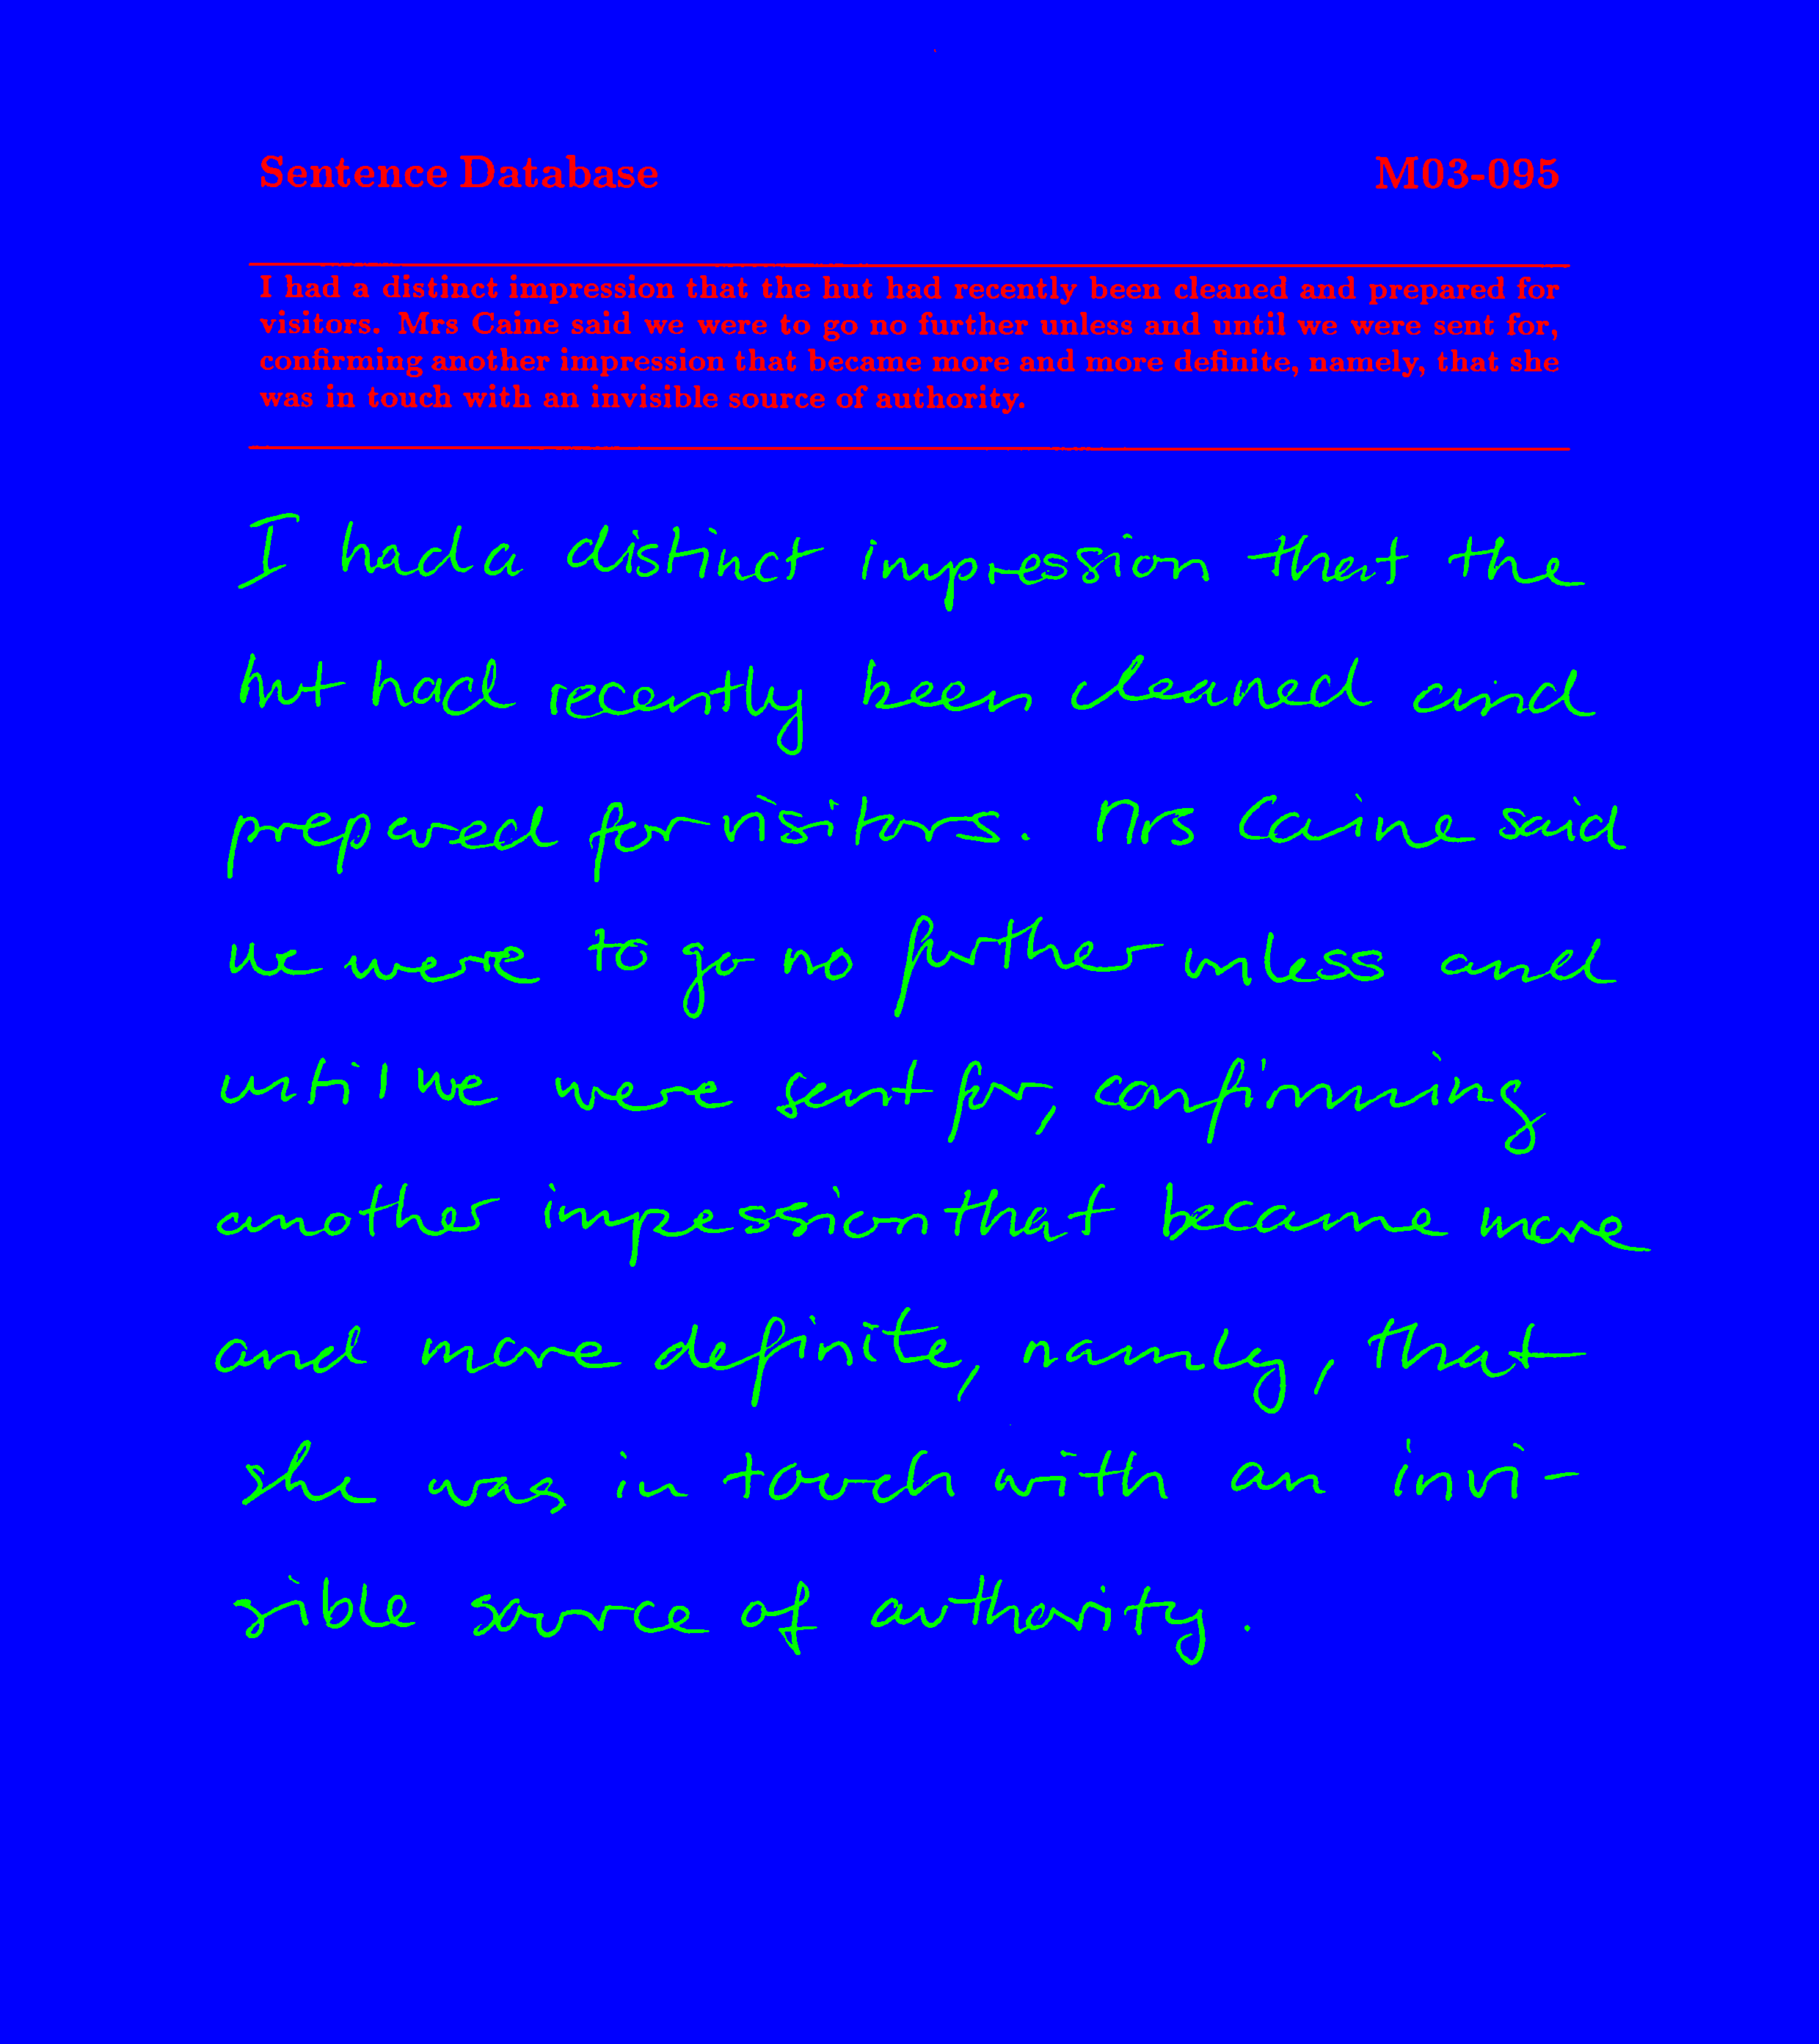 Sentence Database M03-095
I had a distinct impression that the hut had recently been cleaned and prepared for
visitors. Mrs Caine said we were to go no further unless and until we were sent for,
confirming another impression that became more and more definite, namely, that she
was in touch with an invisible source of authority.
I had a distinct impression that the
hut had recently been cleaned and
prepared for visitors. Mrs Caine said
we were to go no further unless and
until we were sent for, confirming
another impession that became more
and more definite, namly, that
she was in touch with an invi-
sible source of authority.